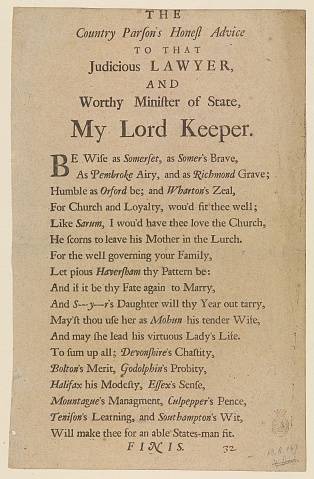 THE
Country Parſon's Honeſt Advice
TO THAT
Judicious LAWYER,
AND
Worthy Miniſter of State,
My Lord Keeper.
BE Wiſe as Somerſet, as Somer's Brave,
As Pembroke Airy, and as Richmond Grave;
Humble as Orford be; and Wharton's Zeal,
For Church and Loyalty, wou'd fit thee well;
Like Sarum, I wou'd have thee love the Church,
He ſcorns to leave his Mother in the Lurch.
For the well governing your Family,
Let pious Haverſham thy Pattern be:
And if it be thy Fate again to Marry,
And S--y--r's Daughter will thy Year out tarry,
May'ſt thou uſe her as Mohun his tender Wife,
And may ſhe lead his virtuous Lady's Life.
To ſum up all; Devonſhire's Chaſtity,
Bolton's Merit, Godolphin's Probity,
Halifax his Modeſty, Eſſex's Senſe,
Mountague's Managment, Culpepper's Pence,
Teniſon's Learning, and Southampton's Wit,
Will make thee for an able States-man fit.
FINIS.
32